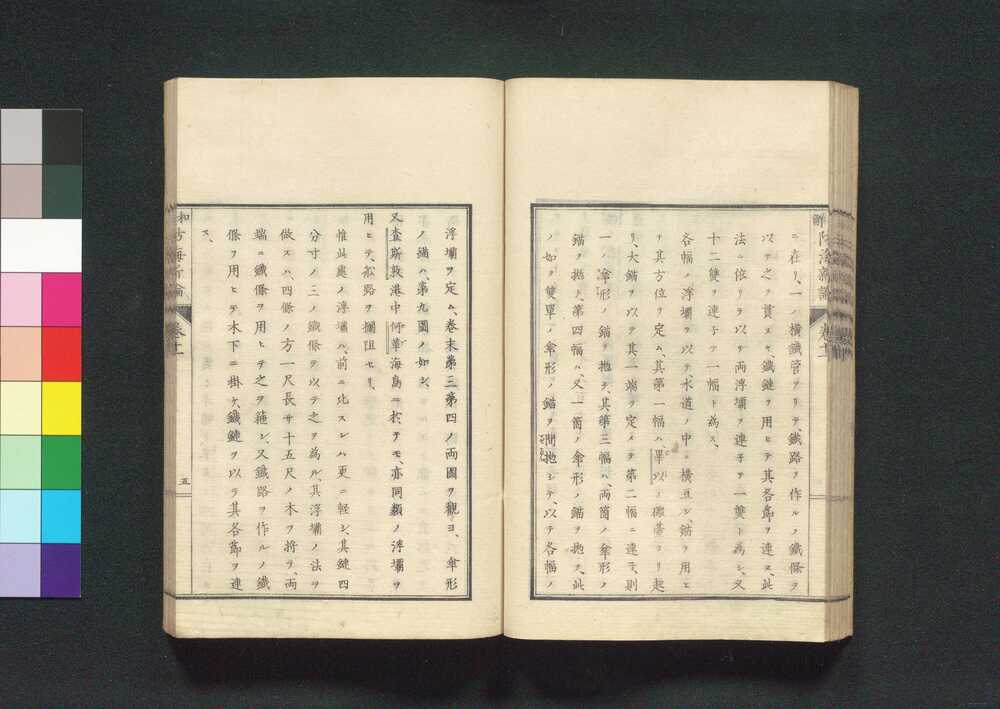 ニ在リ、一ノ横鐵管ヲリテ、鐵路ヲ作ルノ鐵條ヲ
以テ之ヲ貫ヌキ、鐵鏈ヲ用ヒテ其各節ヲ連ヌ、此
法ニ依リヲ以テ両浮壩ヲ連子ヲ一雙ト為シ、又
十二雙ヲ連子テ一幅ト為ス、
各幅ノ浮壩ヲ以テ、水道ノ中ニ横亘シ、錨ヲ用ヒ
テ其方位ヲ定ム、其第一幅ハ單以ノ礮臺ヨリ起
リ、大錨ヲ以テ其一端ヲ定メテ第二幅ニ連子、則
一ノ傘形ノ錨ヲ拋チ、其第三幅ハ、両箇ノ傘形ノ
錨ヲ拋チ、第四幅ハ、又一箇ノ傘形ノ錨ヲ拋ス、此
ノ如ク雙單ノ傘形ノ錨ヲ間拋シテ、以テ各幅ノ
浮壩ヲ定ム、卷末第三第四ノ両圖ヲ觀ヨ、傘形
ノ錨ハ、第九圖ノ如シ、
又査斯敦港中何華海島ニ於テモ、亦同類ノ浮壩ヲ
用ヒテ、船路ヲ攔阻セリ、
惟此處ノ浮壩ハ、前ニ比スレハ更ニ軽シ、其鏈四
分寸ノ三ノ鐵條ヲ以テ之ヲ為ル、其浮壩ノ法ヲ
做スハ、四條ノ方一尺長サ十五尺ノ木ヲ将テ、両
端ニ鐵條ヲ用ヒテ之ヲ箍シ、又鐵路ヲ作ルノ鐵
條ヲ用ヒテ木下ニ掛ケ、鐵鏈ヲ以テ其各節ヲ連
ス、
卷十一
五